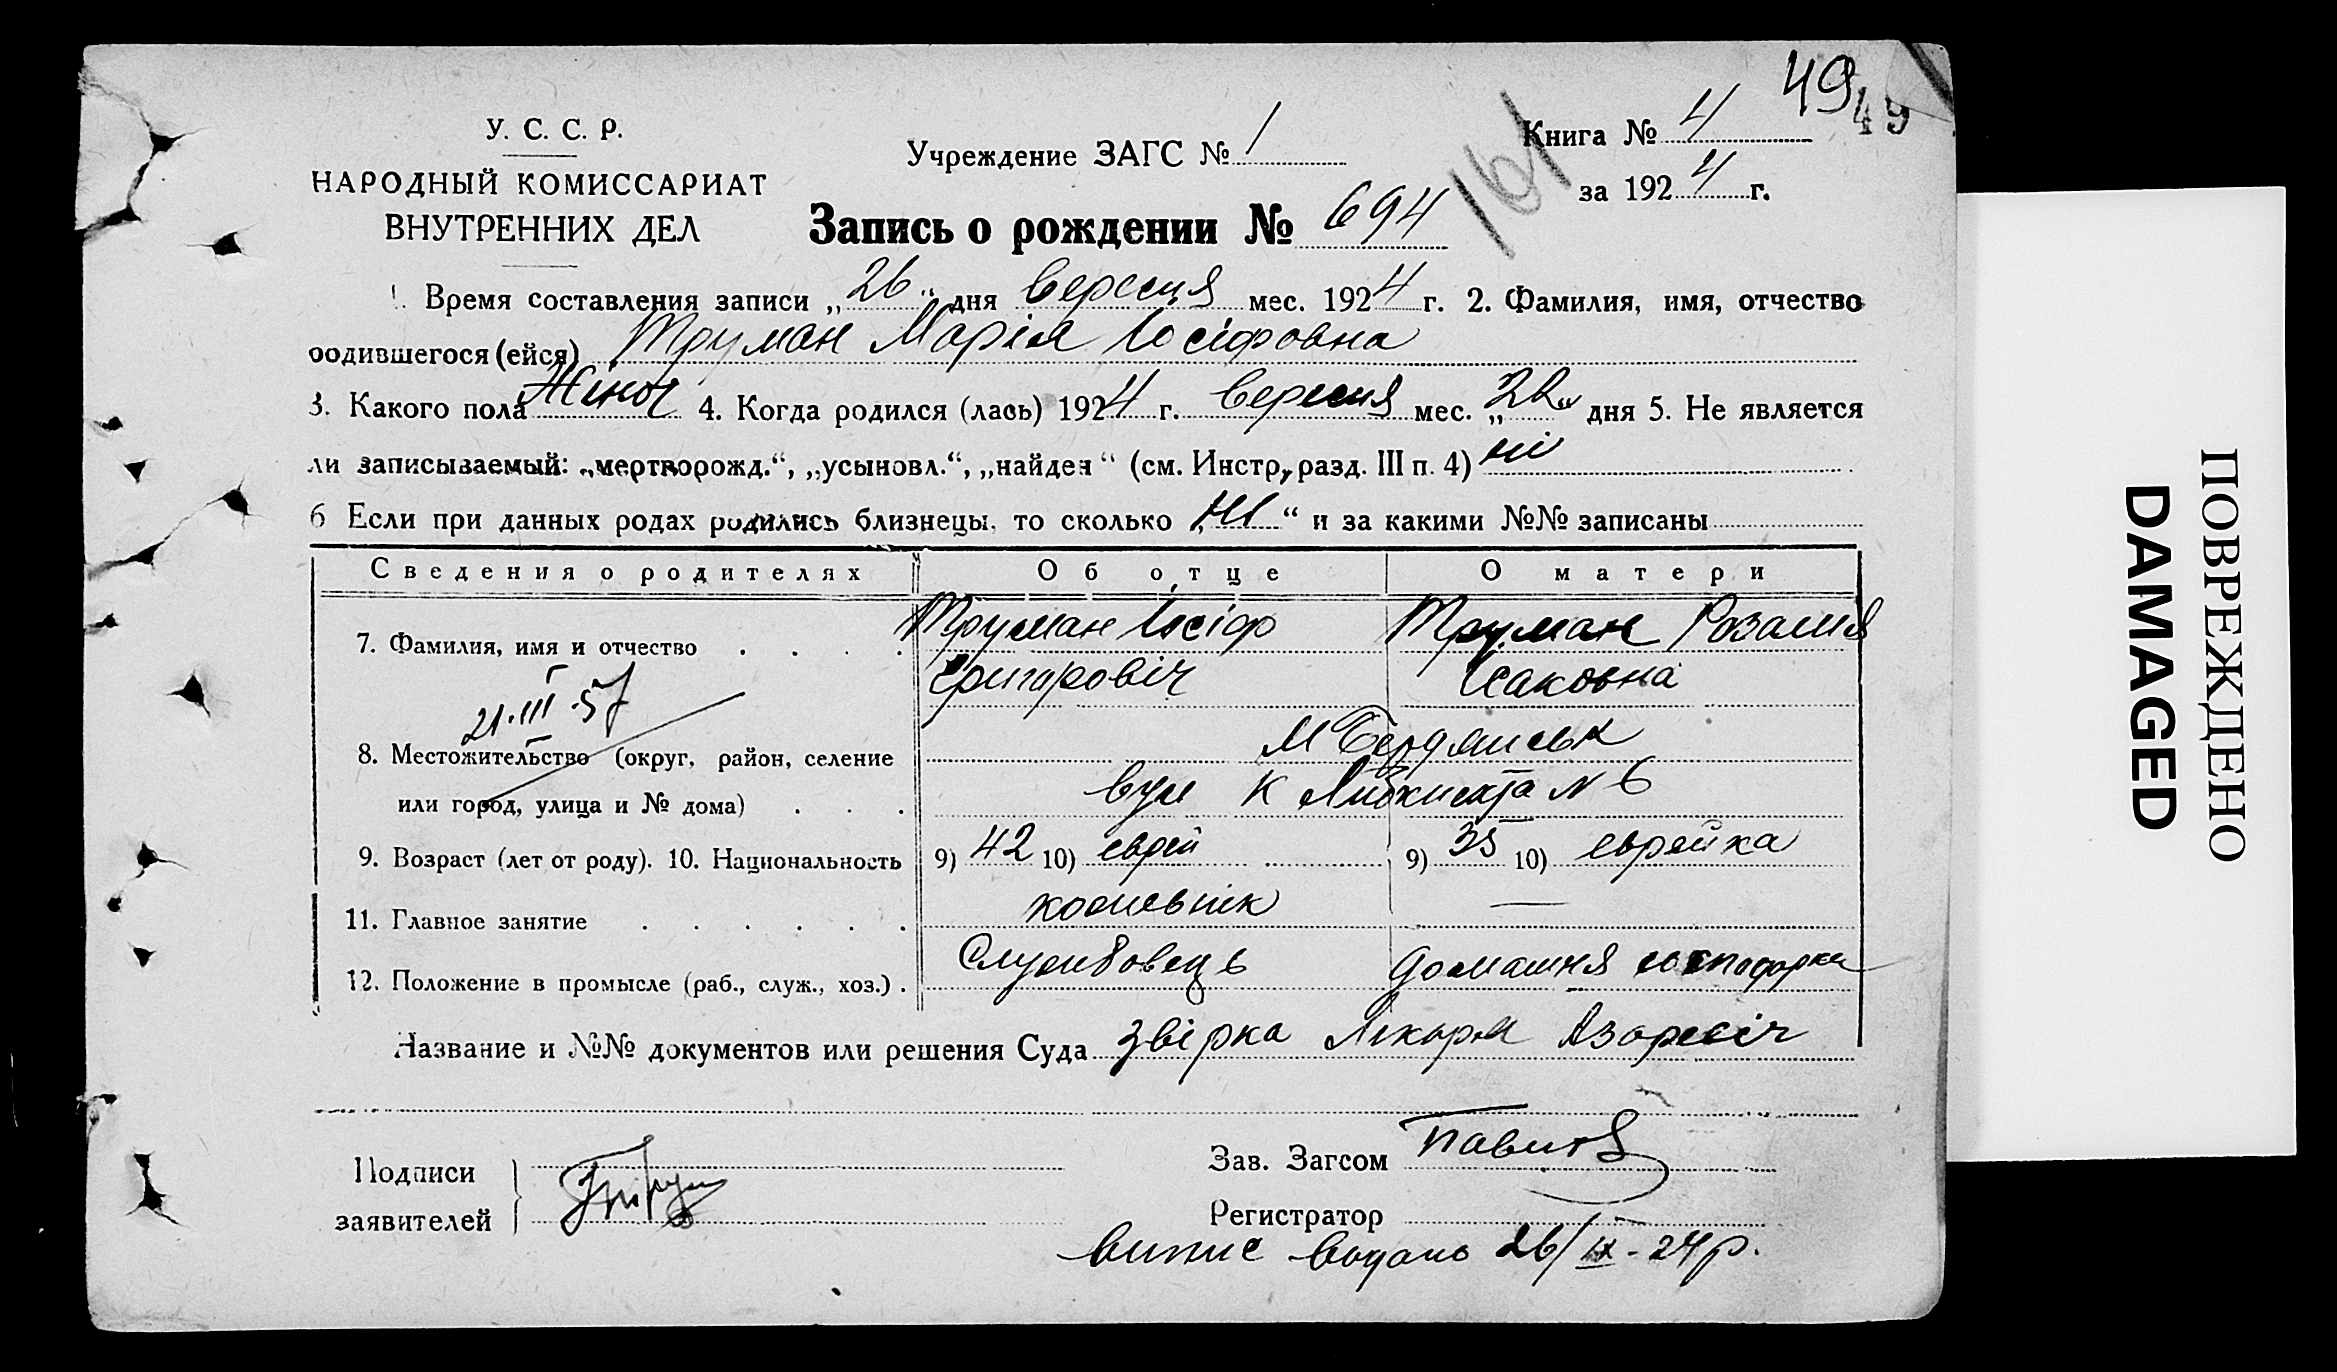 49
49
У. С. С. Р.
НАРОДНЫЙ КОМИССАРИАТ
ВНУТРЕННИХ ДЕЛ
Учреждение ЗАГС № 1
161
Книга № 4
за 1924 г.
Запись о рождении № 694
1. Время составления записи „26“ дня вересня мес. 1924 г. 2. Фамилия, имя, отчество
родившегося (ейся) Труман Марія Іосіфовна
3. Какого пола Жіноч 4. Когда родился (лась) 1924 г. вересня мес. „ “ дня 5. Не является
ли записываемый: „мертворожд.“, „усыновл.“, „найден“ (см. Инстр, разд. III п. 4) ні
6 Если при данных родах родились близнецы, то сколько „ні“ и за какими №№ записаны
Сведения о родителях Об отце О матери
7. Фамилия, имя и отчество . . . . Труман Іосіф Труман Розалія
Григоровіч Ісаковна
21·III·57
8. Местожительство (округ, район, селение М Бердянськ
или город, улица и № дома) . . . вул К Лібкнехта № 6
9. Возраст (лет от роду). 10. Национальность 9) 42 10) еврей 9) 35 10) еврейка
11. Главное занятие . . . . . . —
12. Положение в промысле (раб., служ., хоз.) . Службовець домашня господарка
Название и №№ документов или решения Суда звірка Лікаря
Подписи
заявителей
Зав. Загсом
Регистратор
випис видано 26/IX-24р.
ПОВРЕЖДЕНО
DAMAGED